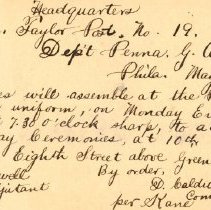 Headquarters
Taylor Post. No. 19.
Dep't Penna. G.
Phila. Ma
es will assemble at the
uniform, on Monday E
7.30 o'clock sharp, to a
ay Ceremonies, at 10th
Eighth Street above Green
well By order,
jutant D. Caldw
Com
per Kane